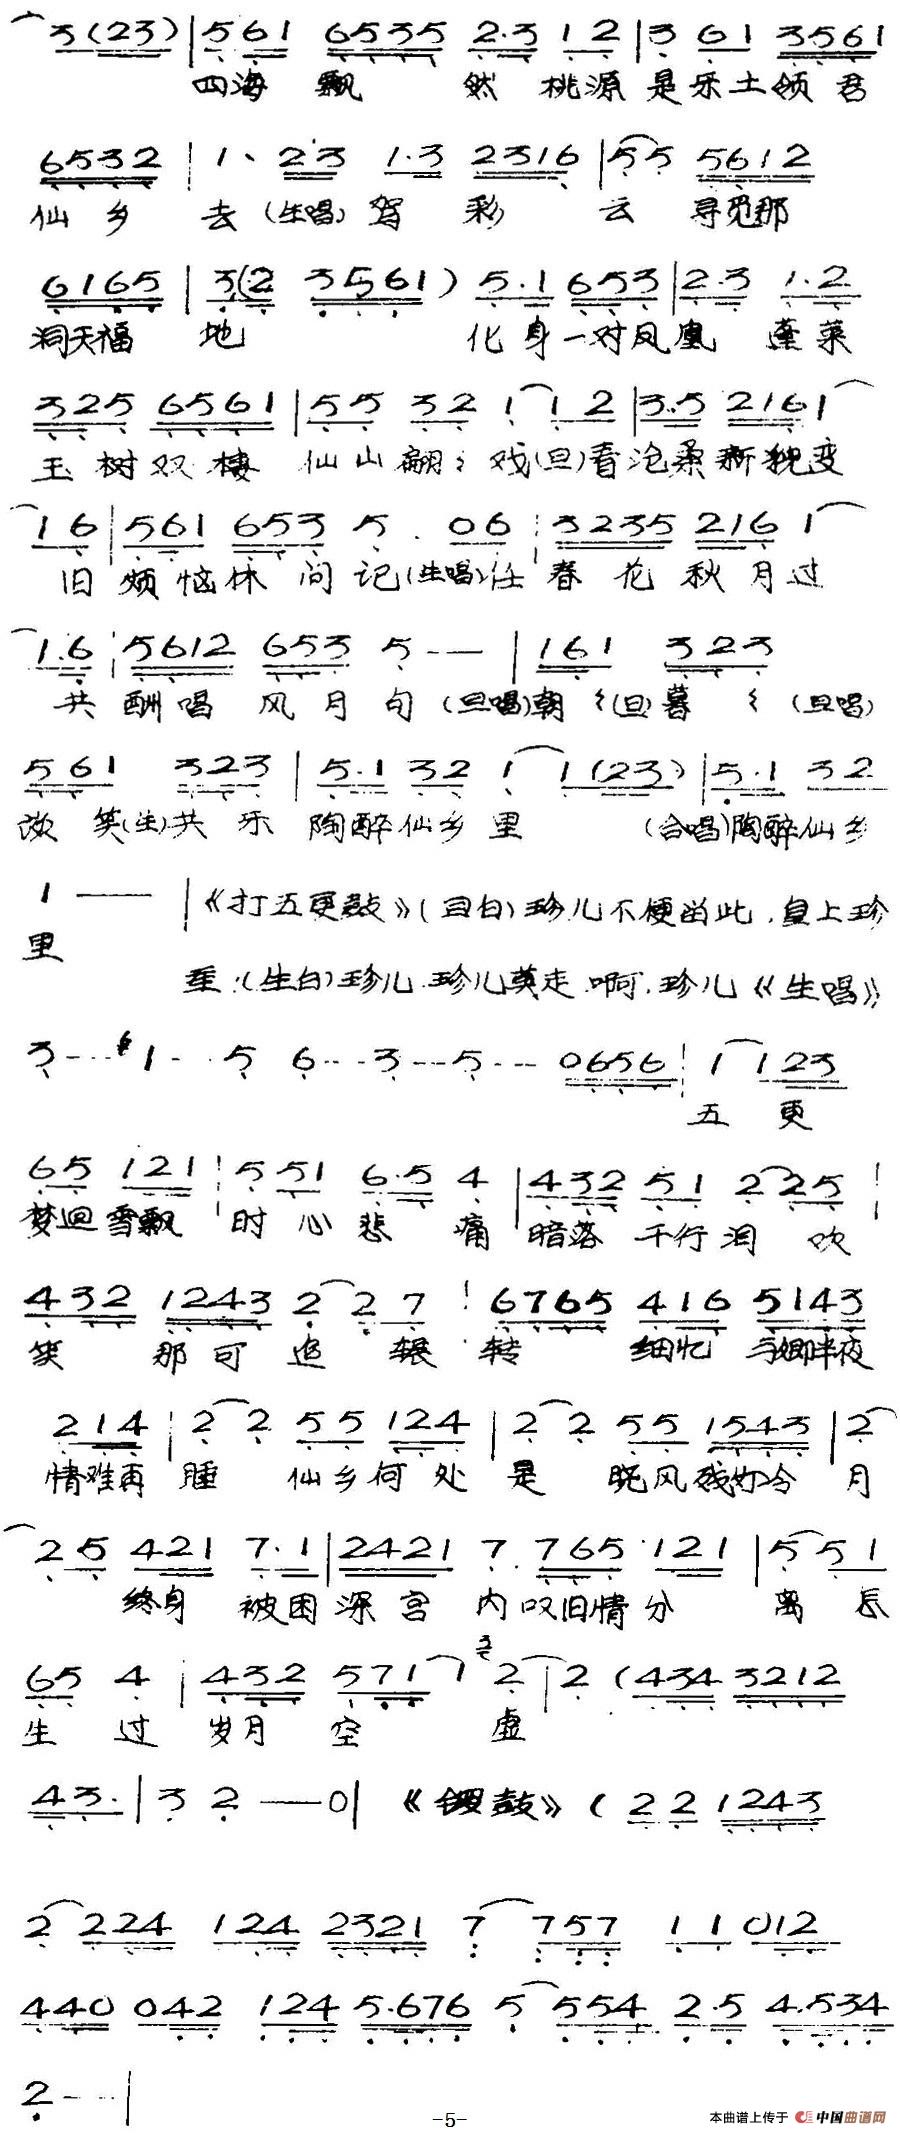 3(23) | 561 6535 2·3 12 | 3 61 3561
四海 飘 然 桃源 是乐土领君
6532 | 1、 23 1·3 2316 | 55 5612
仙乡 去(生唱)驾 彩 云 寻觅那
6165 | 3(2 3561) 5·1 653 | 2·3 1·2
洞天福 地 化身一对凤凰 蓬莱
325 6561 | 55 32 1 12 | 3·5 2161
玉树双栖 仙山翩〻戏(旦)看沧桑新貌变
16 | 561 653 5· 06 | 3235 216 1
旧烦恼休问记(生唱)任春花秋月过
1·6 | 5612 653 5-- | 161 323
共酬唱 风月句(旦唱)朝〻(旦)暮〻(旦唱)
561 323 | 5·1 32 1 1(23) | 5·1 32
笑(生)共乐 陶醉仙乡里 (合唱)陶醉仙乡
1 -- | 《打五更鼓》(旦白)珍儿不便留此，皇上珍
里
重.(生白)珍儿.珍儿莫走.啊.珍儿《生唱》
3--- 6 1-- 5 6-- 3-- 5-- 0656 | 1 123
五 更
65 121 | 5 51 6·5 4 | 432 51 2 25
梦回雪飘 时心悲 痛 暗落 千行泪 吹
432 1243 2 27 | 6765 416 5143
笑 那可追 辗 转 细忆 与卿半夜
214 | 2 2 55 124 | 2 2 55 1543 | 2
情难再 睡 仙乡何处 是 晓风残 冷 月
2·5 421 7·1 | 2421 7·765·121 | 5 51
终身 被困深宫 内叹旧情分 离 怅
65 4 | 432 571 1 3 2 | 2 (434 3212
生过 岁月 空 虚
43· | 3 2 -- 0 | 《锣鼓》( 22 1243
2 224 124 2321 7 757 11 012
440 042 124 5·676 5 554 2·5 4·534
2-- |
-5-
本曲谱上传于 中国曲谱网